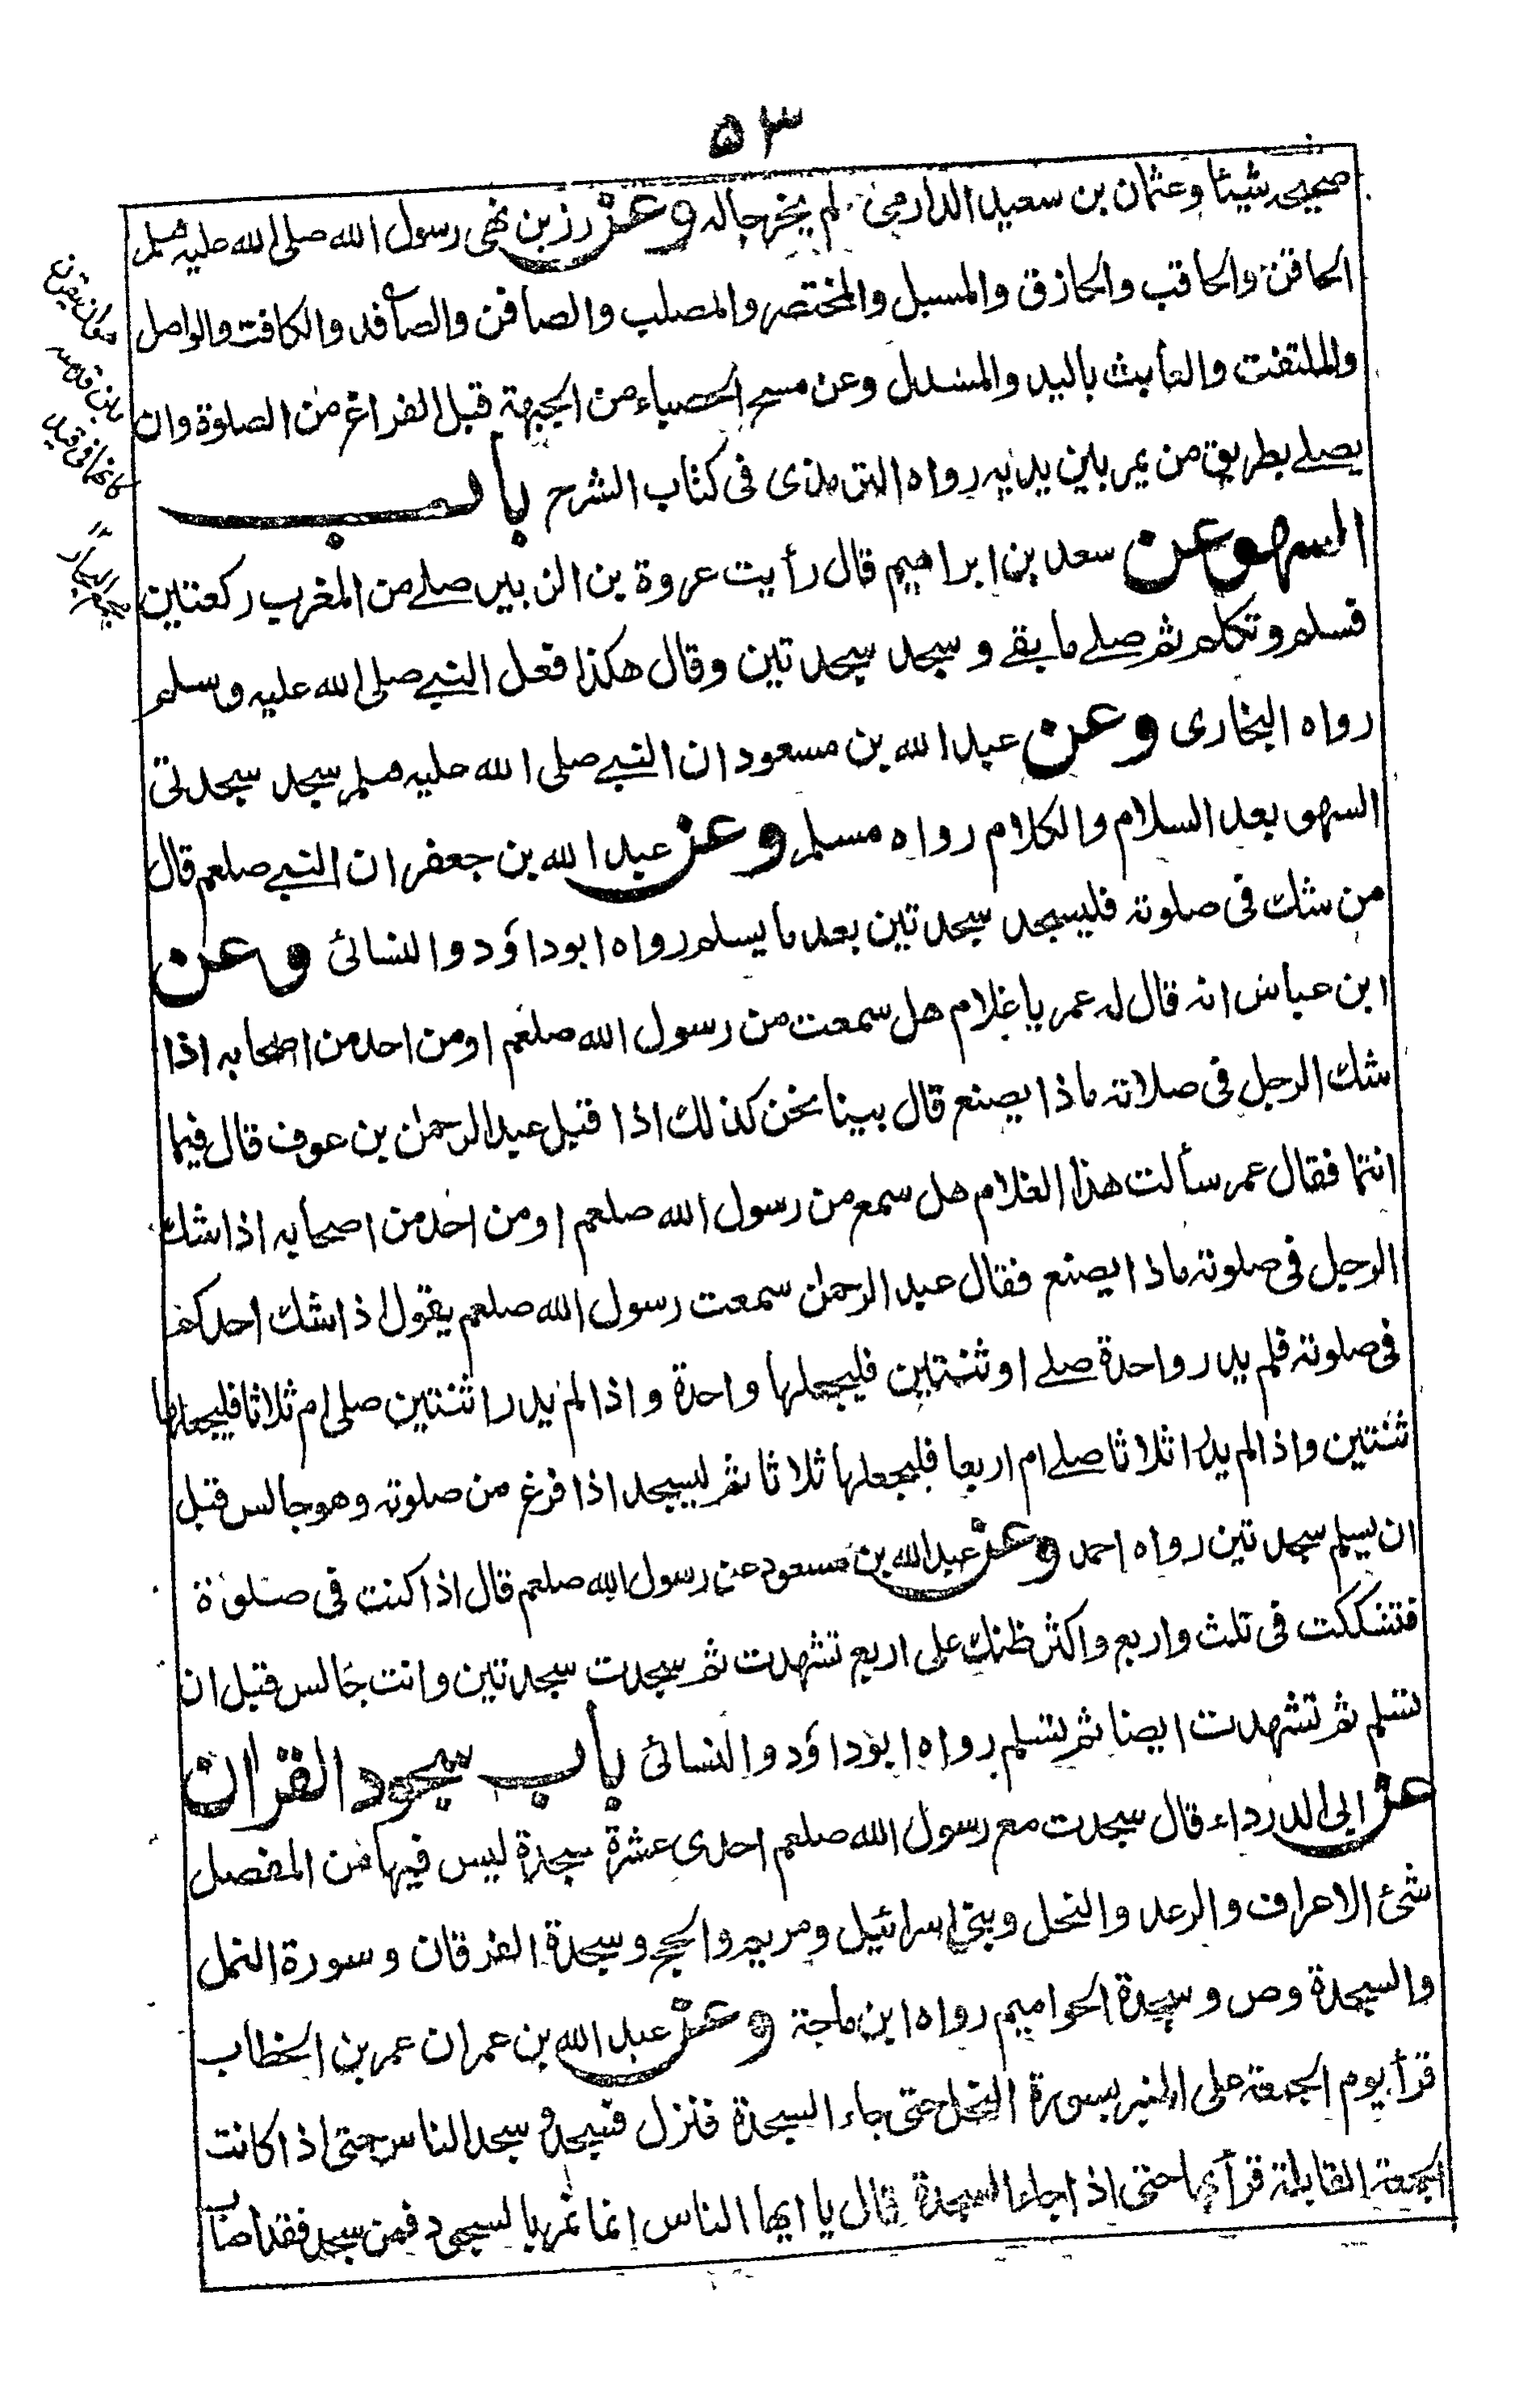 ۵۳
صحيحه شيئا وعثمان بن سعيد الدارمى لم يخرجا له وعن رزين نهى رسول الله صلى الله عليه وسلم
الحاقن والحاقب والحازق والمسبل والمختصر والمصلب والصافن والصافد والكافت والواصل
والملتفت والعابث باليد والمسدل وعن مسح الحصباء من الجبهة قبل الفراغ من الصلوة وان
يصلے بطريق من يمر بين يديه رواه الترمذى فى كتاب الشرح باب
السهو عن سعد بن ابراهيم قال رأيت عروة بن الزبير صلے من المغرب ركعتين
فسلم وتكلم ثم صلے ما بقے و سجد سجدتين وقال هكذا فعل النبے صلى الله عليه وسلم
رواه البخارى وعن عبد الله بن مسعود ان النبے صلى الله عليه وسلم سجد سجدتى
السهو بعد السلام والكلام رواه مسلم وعن عبد الله بن جعفر ان النبے صلعم قال
من شك فى صلوته فليسجد سجدتين بعد ما يسلم رواه ابوداؤد والنسائى وعن
ابن عباس انه قال له عمر يا غلام هل سمعت من رسول الله صلعم او من احد من اصحابه اذا
شك الرجل فى صلاته ماذا يصنع قال بينا نحن كذلك اذا قبل عبد الرحمن بن عوف قال فيما
انتما فقال عمر سألت هذا الغلام هل سمع من رسول الله صلعم او من احد من اصحابه اذا شك
الرجل فى صلوته ماذا يصنع فقال عبد الرحمن سمعت رسول الله صلعم يقول اذا شك احدكم
فى صلوته فلم يدر واحدة صلے او ثنتين فليجعلها واحدة واذا لم يدر اثنتين صلى ام ثلاثا فليجعلها
ثنتين واذا لم يدر اثلاثا صلے ام اربعا فليجعلها ثلاثا ثم ليسجد اذا فرغ من صلوته وهو جالس قبل
ان يسلم سجدتين رواه احمد وعن عبد الله بن مسعود عن رسول الله صلعم قال اذا كنت فى صلوة
فتشككت فى ثلث واربع واكثر ظنك على اربع تشهدت ثم سجدت سجدتين وانت جالس قبل ان
تسلم ثم تشهدت ايضا ثم تسلم رواه ابوداؤد والنسائى باب سجود القران
عن ابى الدرداء قال سجدت مع رسول الله صلعم احدى عشرة سجدة ليس فيها من المفصل
شئ الاعراف والرعد والنحل وبنى اسرائيل ومريم والحج وسجدة الفرقان وسورة النمل
والسجدة وص وسجدة الحواميم رواه ابن ماجة وعن عبد الله بن عمر ان عمر بن الخطاب
قرأ يوم الجمعة على المنبر بسورة النحل حتى جاء السجدة فنزل فسجد و سجد الناس حتى اذا كانت
الجمعة القابلة قرأ بها حتى اذا جاء السجدة قال يا ايها الناس انما نمر بالسجود فمن سجد فقد اصاب